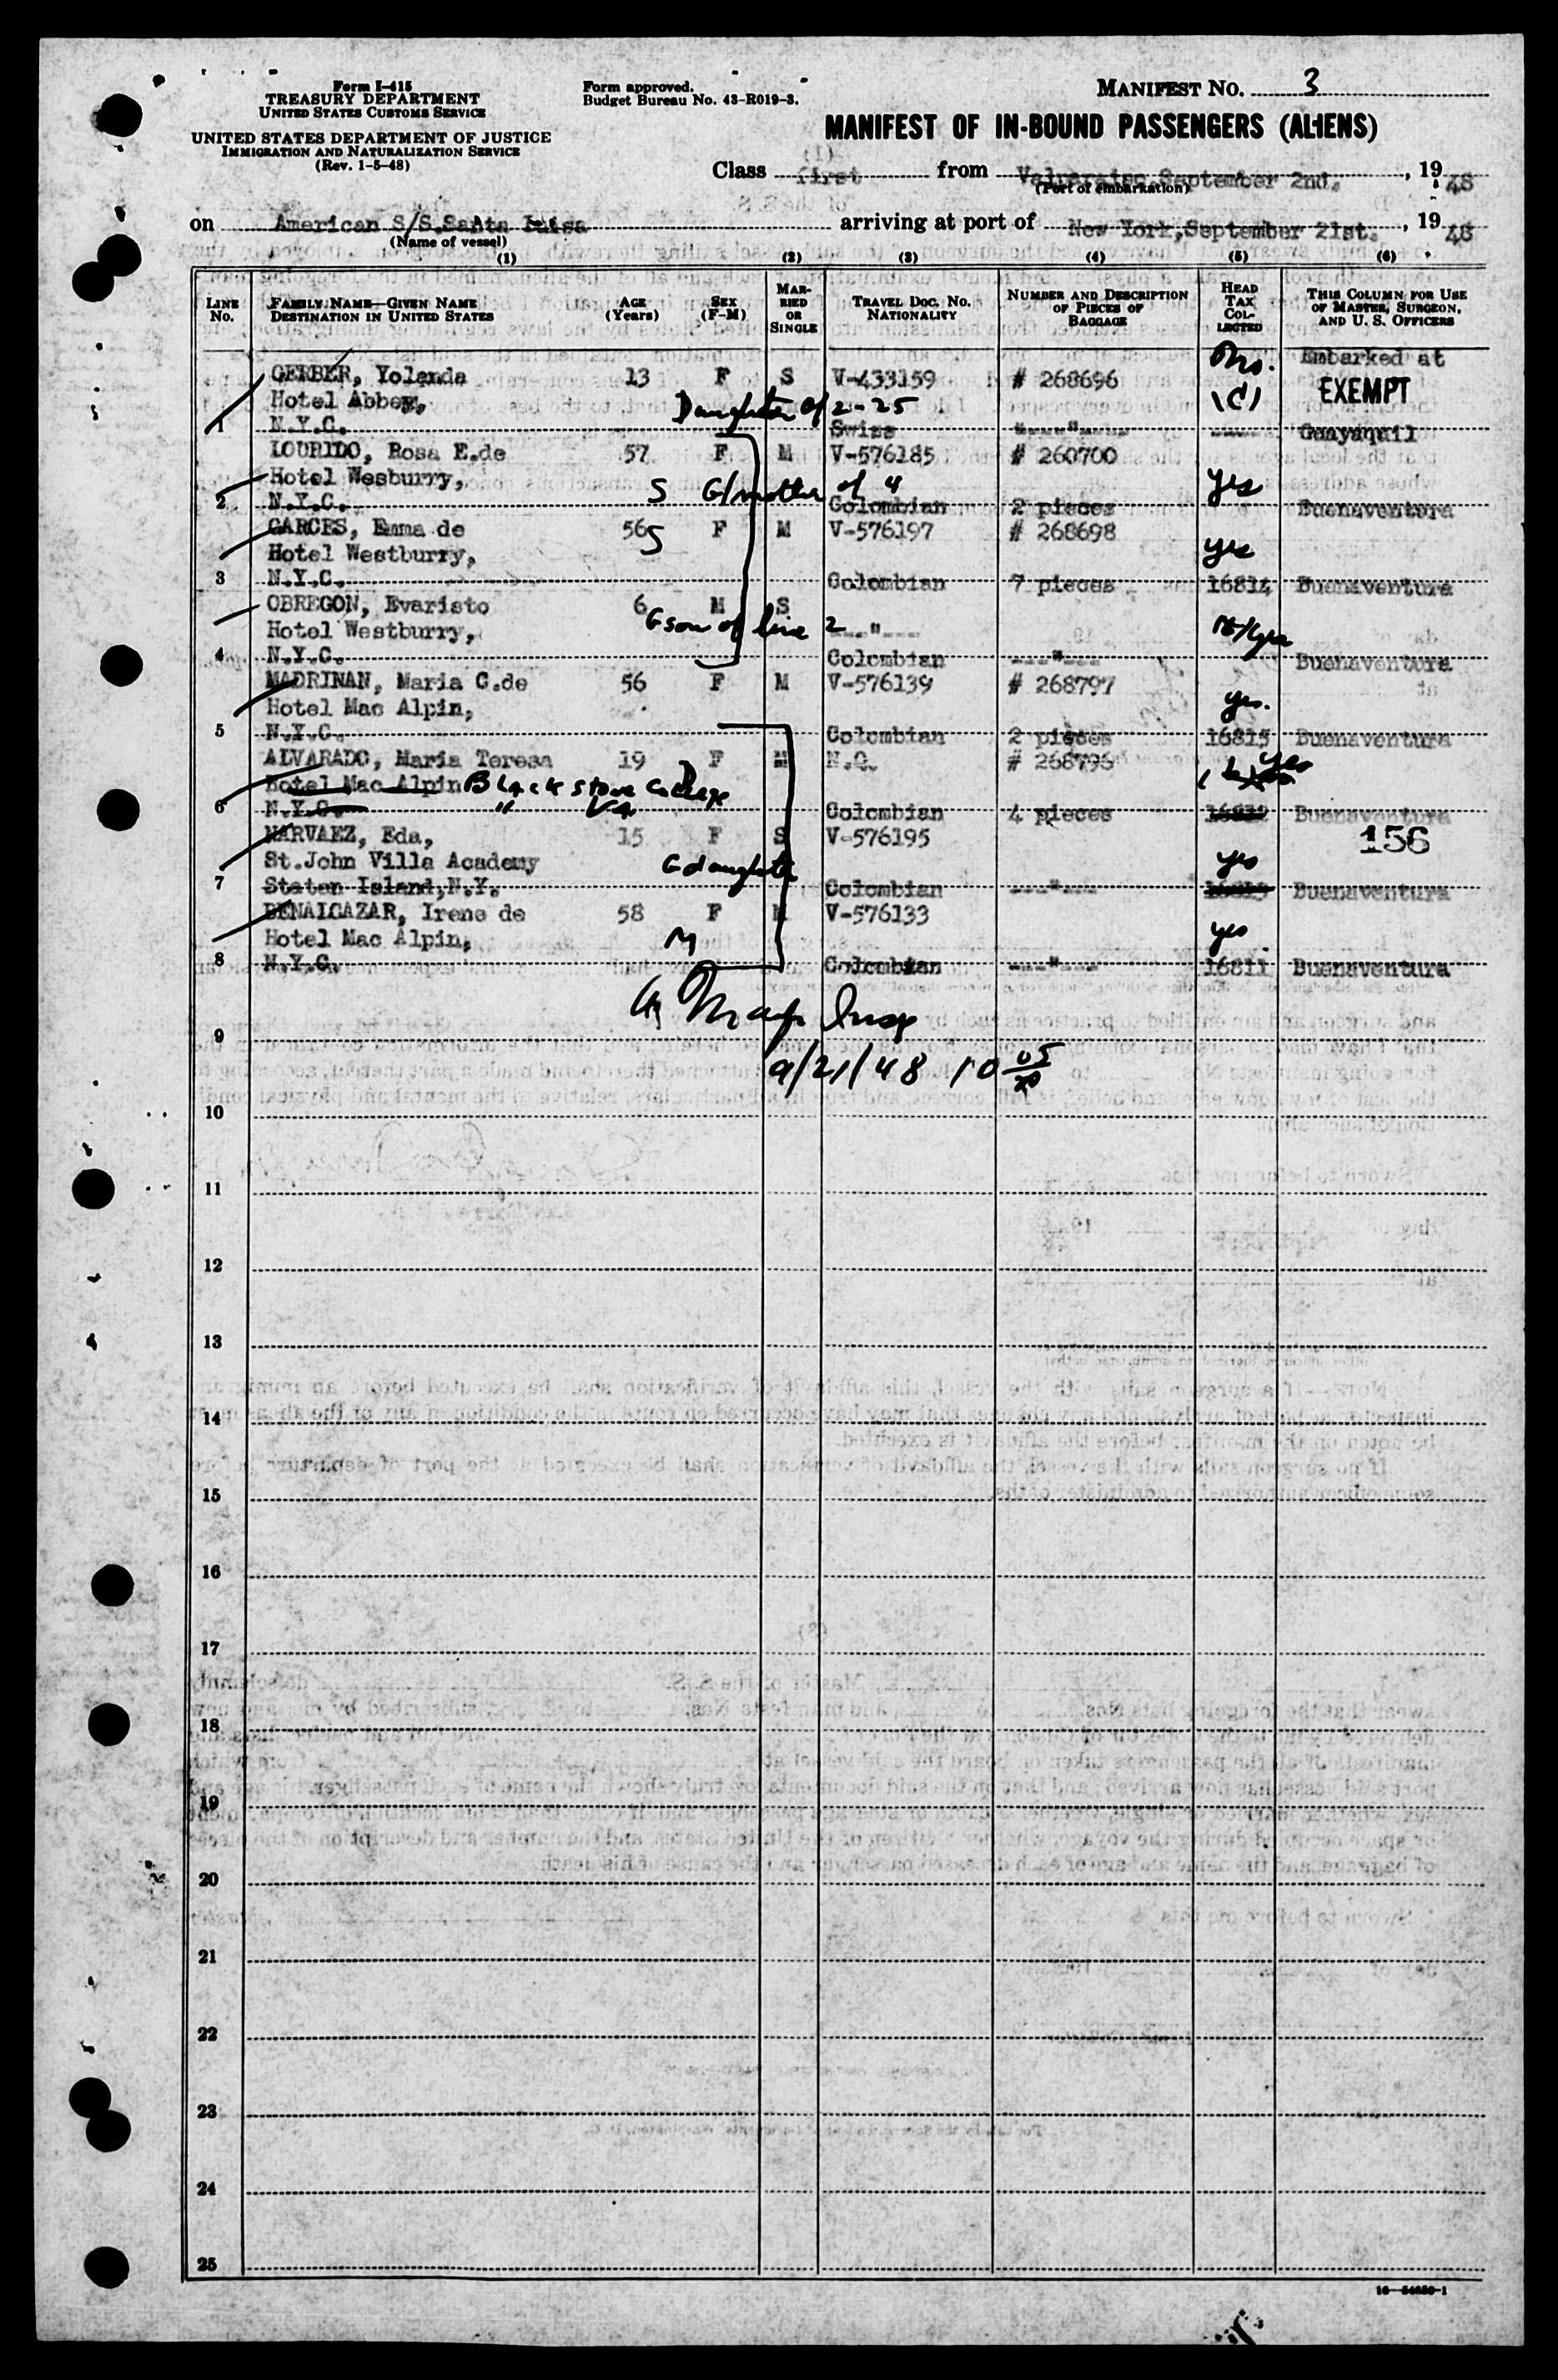 Form I-415
TREASURY DEPARTMENT
UNITED STATES CUSTOMS SERVICE
UNITED STATES DEPARTMENT OF JUSTICE
IMMIGRATION AND NATURALIZATION SERVICE
(Rev. 1-5-48)
Form approved.
Budget Bureau No. 43-R019-3.
MANIFEST NO. 3
MANIFEST OF IN-BOUND PASSENGERS (ALIENS)
Class first from Valparaiso, September 2nd. , 19 48
(Port of embarkation)
on American S/S. Santa Luisa arriving at port of New York, September 21st. , 19 48
(Name of vessel)
(1) (2) (3) (4) (5) (6)
LINE No.
FAMILY NAME—GIVEN NAME
DESTINATION IN UNITED STATES
AGE (Years)
SEX (F-M)
MARRIED OR SINGLE
TRAVEL DOC. NO. NATIONALITY
NUMBER AND DESCRIPTION OF PIECES OF BAGGAGE
HEAD TAX COLLECTED
THIS COLUMN FOR USE OF MASTER, SURGEON, AND U. S. OFFICERS
Embarked at
GERBER, Yolanda 13 F S V-433159 # 268696
Hotel Abbey, Daughter of 2-25 (C) EXEMPT
1 N.Y.C. Swiss ----"---- Guayaquil
LOURIDO, Rosa E.de 57 F M V-576185 # 260700
Hotel Wesburry, S G/mother of 4 yes
2 N.Y.C. Colombian 2 pieces Buenaventura
GARCES, Emma de 56 S F M V-576197 # 268698
Hotel Westburry, yes
3 N.Y.C. Colombian 7 pieces 16814 Buenaventura
OBREGON, Evaristo 6 M S
Hotel Westburry, Gson of line 2 ---"---
4 N.Y.C. Colombian ---"--- Buenaventura
MADRINAN, Maria C.de 56 F M V-576139 # 268797
Hotel Mac Alpin, yes.
5 N.Y.C. Colombian 2 pieces 16815 Buenaventura
ALVARADO, Maria Teresa 19 F M N.Q. # 268796 yes
Hotel Mac Alpin Blackstone College D
6 N.Y.C. " Va Colombian 4 pieces Buenaventura
NARVAEZ, Eda, 15 F S V-576195 156
St.John Villa Academy Gdaughter yes
7 Staten Island,N.Y. Colombian ---"--- Buenaventura
BENALCAZAR, Irene de 58 F M V-576133
Hotel Mac Alpin, M yes
8 N.Y.C. Colombian ---"--- 16811 Buenaventura
Insp
9
9/21/48 10 05
10
11
12
13
14
15
16
17
18
19
20
21
22
23
24
25